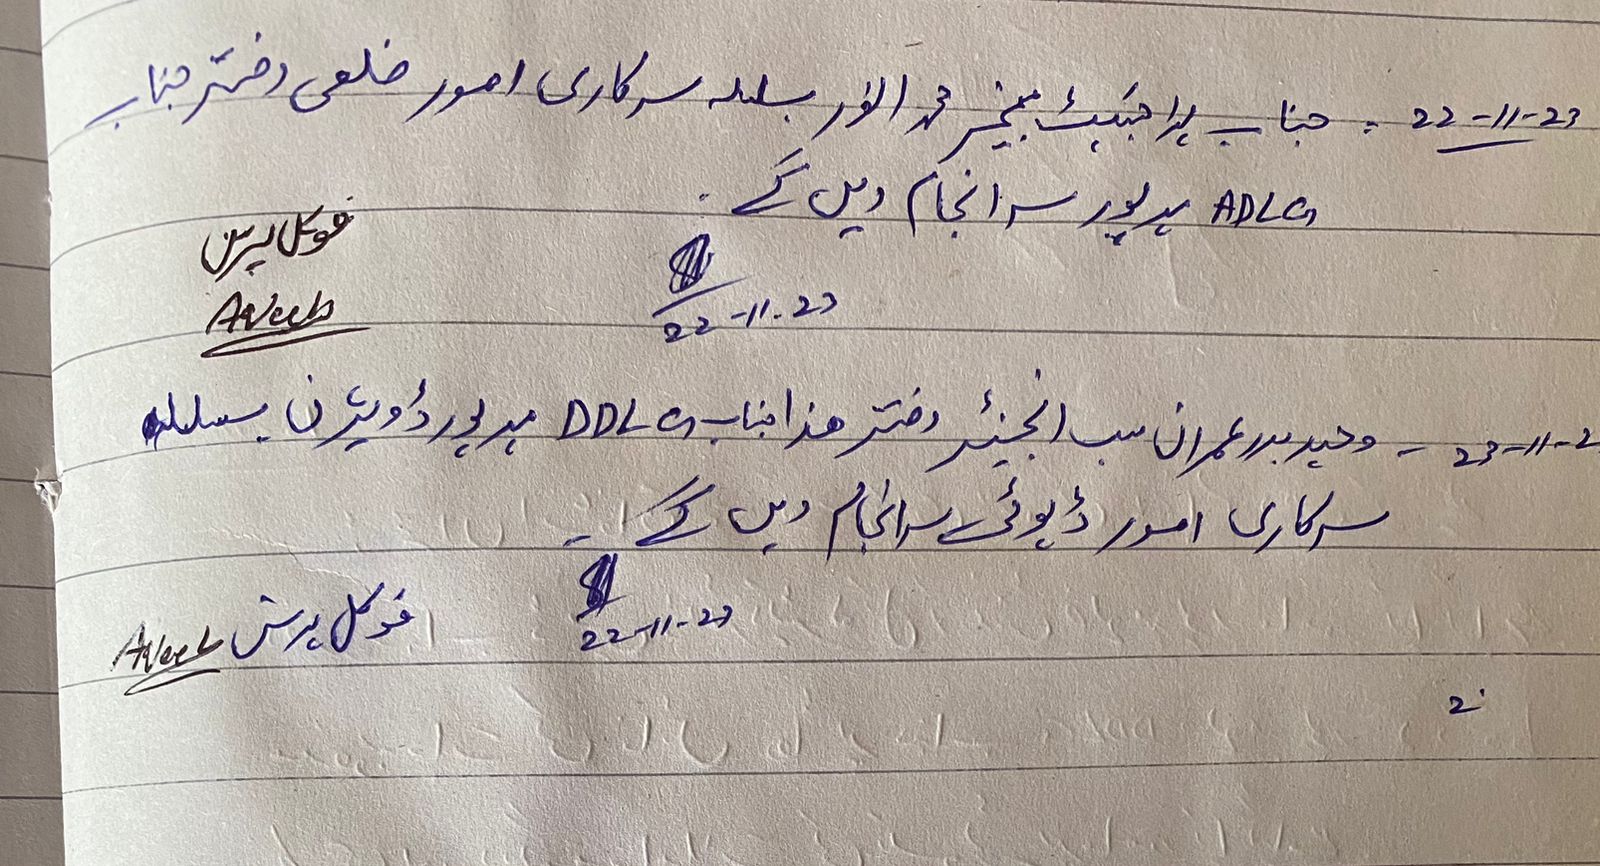 22-11-23 - جناب پراجیکٹ مینیجر محمد انور بسلسلہ سرکاری امور ضلعی دفتر جناب
ADLG میرپور سرانجام دیں گے۔
فوکل پرسن
22-11-23
23-11-2 - وحید بدر عمران سب انجینئر دفتر ھذا جناب DDLG میرپور ڈویژن بسلسلہ
سرکاری امور ڈیوٹی سرانجام دیں گے۔
22-11-23
فوکل پرسن
2